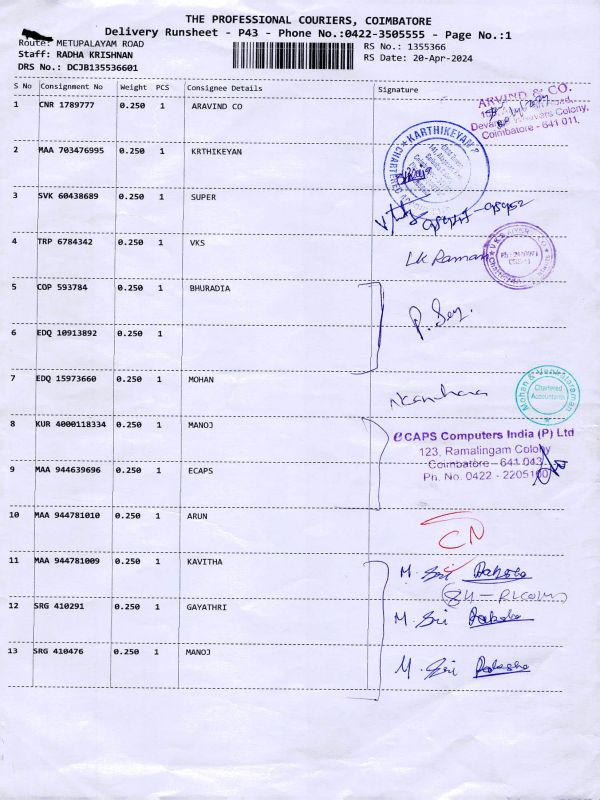 THE PROFESSIONAL COURIERS, COIMBATORE
Delivery Runsheet - P43 - Phone No.:0422-3505555 - Page No.:1
Route: METUPALAYAM ROAD
RS No.: 1355366
Staff: RADHA KRISHNAN
RS Date: 20-Apr-2024
DRS No.: DCJB135536601
S No Consignment No Weight PCS Consignee Details Signature
1 CNR 1789777 0.250 1 ARAVIND CO
ARVIND & CO.
Coimbatore - 641 011.
2 MAA 703476995 0.250 1 KRTHIKEYAN
KARTHIKEYAN
CHARTERED
3 SVK 60438689 0.250 1 SUPER
4 TRP 6784342 0.250 1 VKS
LK Raman
5 COP 593784 0.250 1 BHURADIA
6 EDQ 10913892 0.250 1
7 EDQ 15973660 0.250 1 MOHAN
Mohan & Venkataraman
Chartered
Accountants
8 KUR 4000118334 0.250 1 MANOJ
eCAPS Computers India (P) Ltd
123, Ramalingam Colony
Coimbatore - 641 043
Ph. No. 0422 - 2205100
9 MAA 944639696 0.250 1 ECAPS
10 MAA 944781010 0.250 1 ARUN
CN
11 MAA 944781009 0.250 1 KAVITHA
M. Sri
12 SRG 410291 0.250 1 GAYATHRI
M. Sri
13 SRG 410476 0.250 1 MANOJ
M. Sri